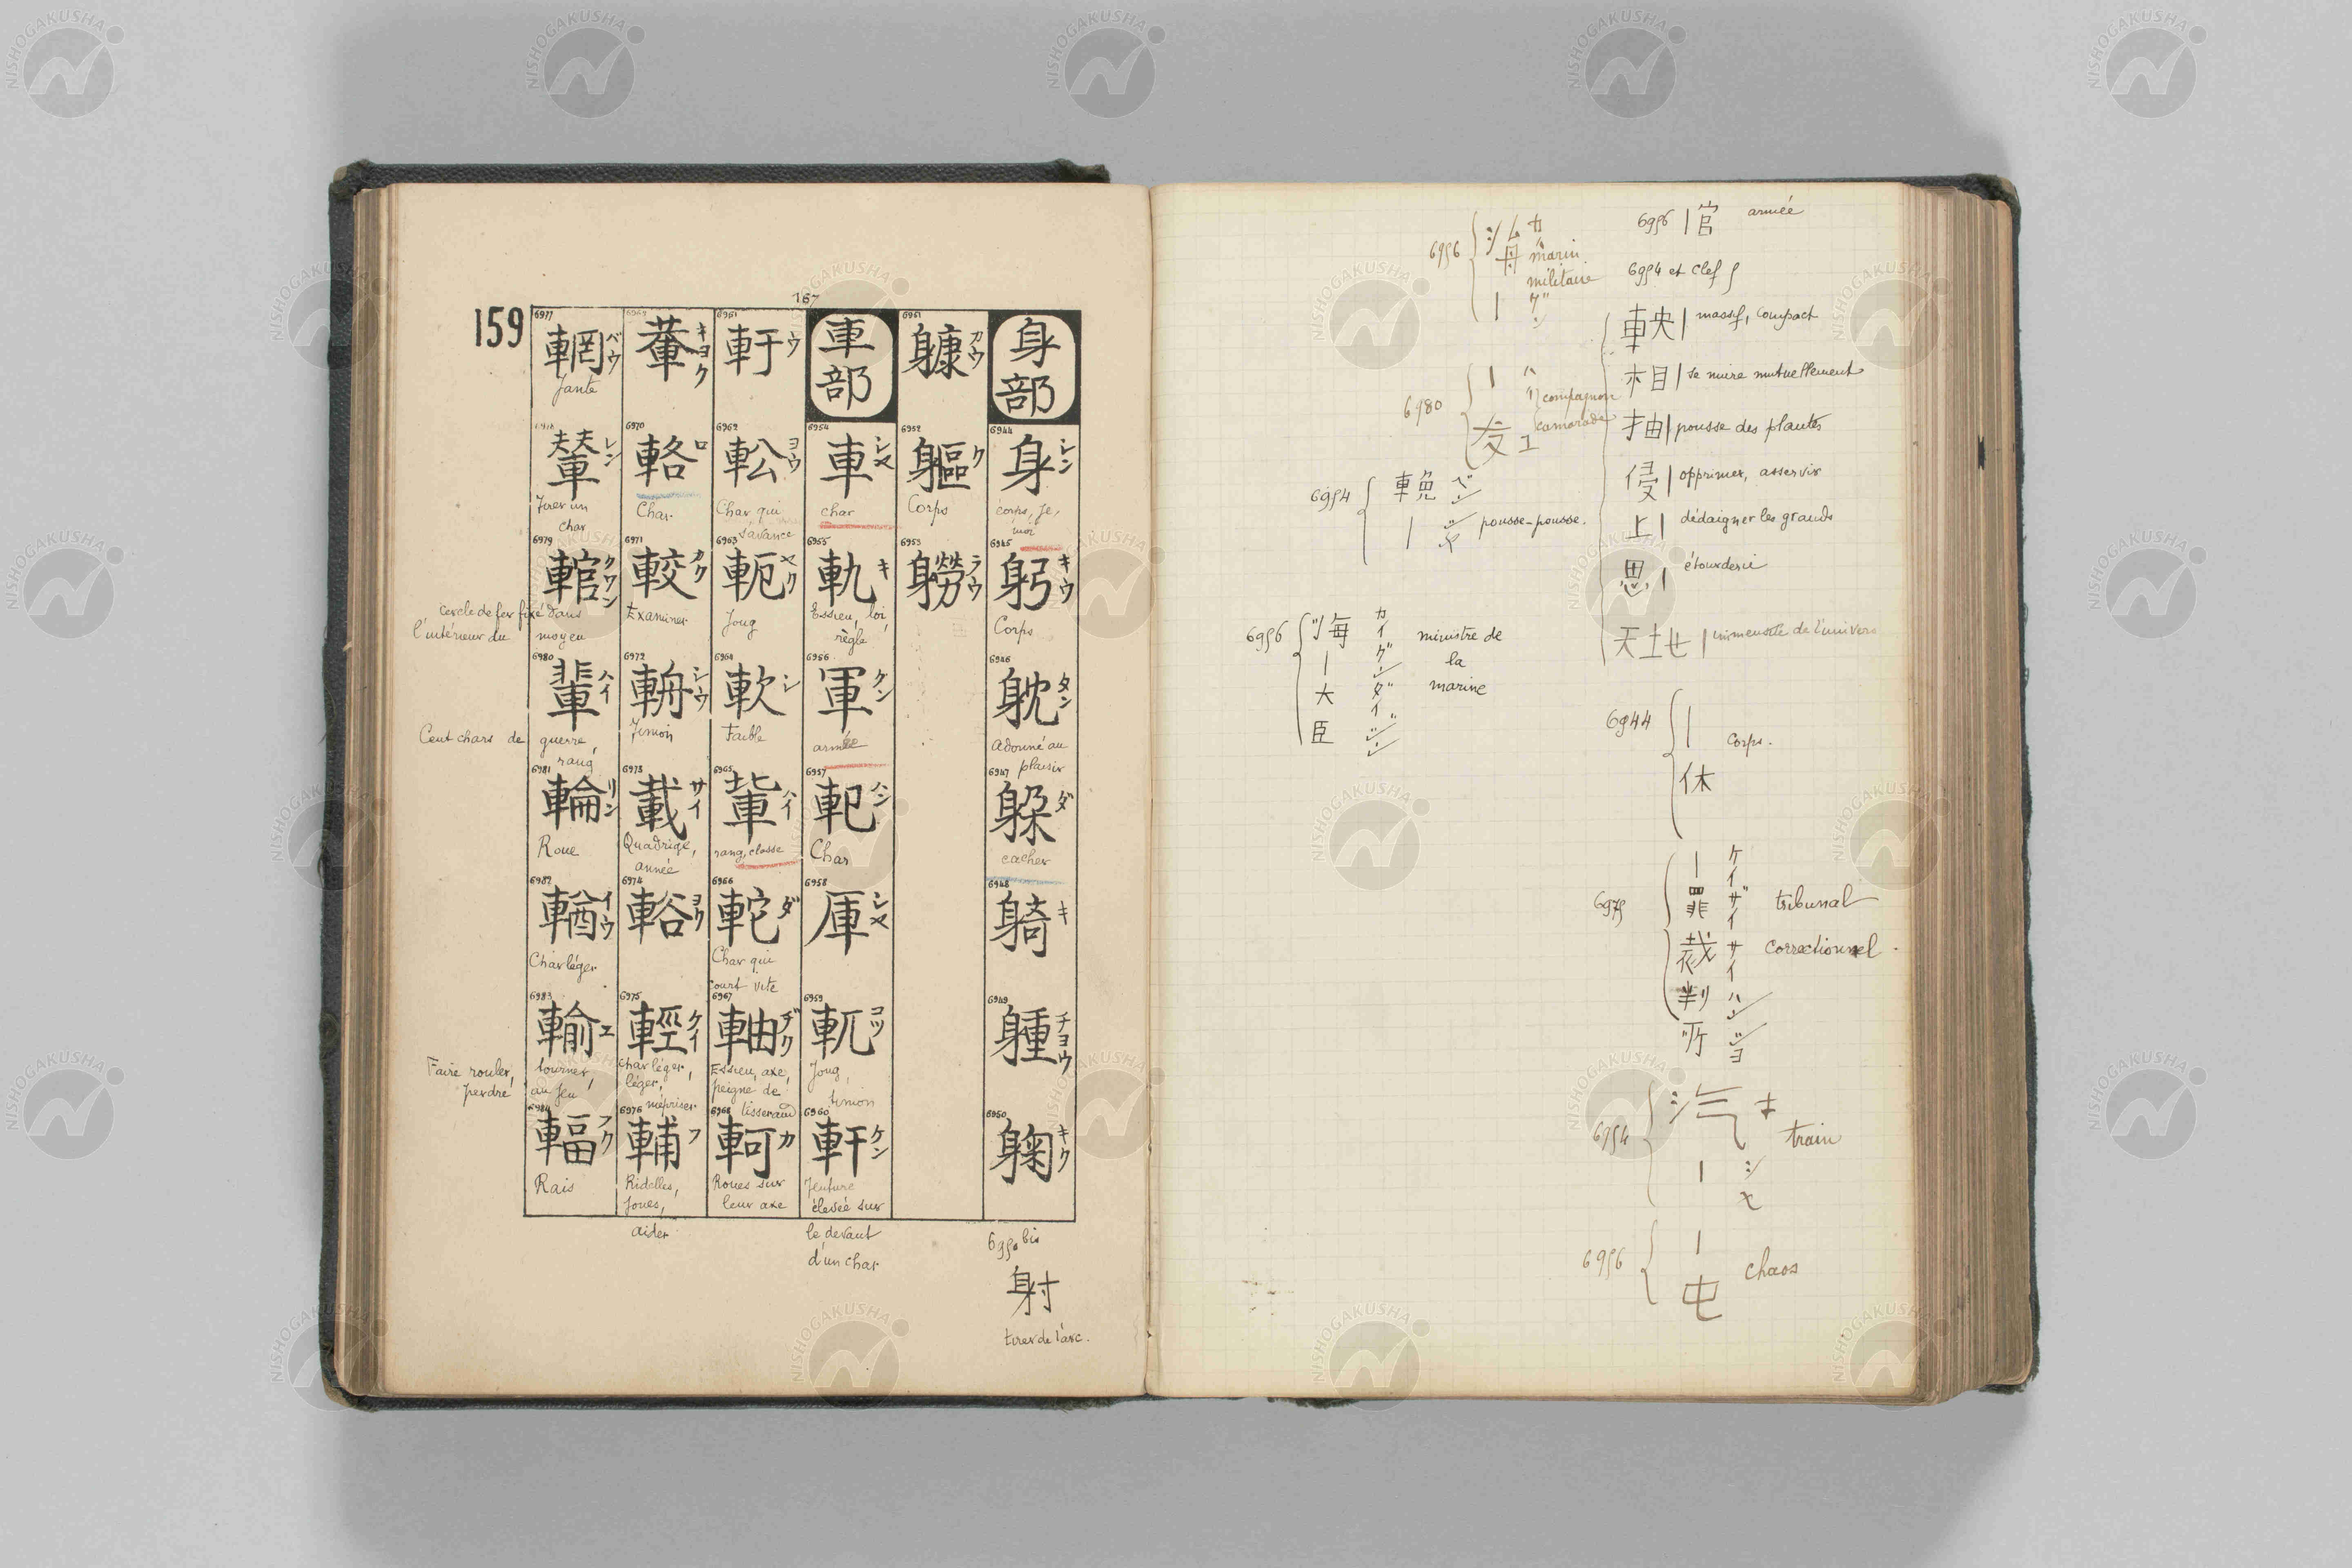 167
159
身部
6944 身 シン
corps, je,
moi
6945 躬 キウ
Corps
6946 躭 タン
Adonné au
plaisir
6947 躱 ダ
cacher
6948 躸 キ
6949 踵 チヨウ
6950 躹 キク
6950 bis
射
tirer de l'arc.
6951 躿 カウ
6952 軀 ク
Corps
6953 軂 ラウ
車部
6954 車 シヤ
char
6955 軌 キ
Essieu, loi,
règle
6956 軍 グン
armée
6957 軋 ハン
Char
6958 厙 シヤ
6959 軏 コツ
Joug,
timon
6960 軒 ケン
Tenture
élevée sur
le devant
d'un char
6961 軒 ウ
6962 軪 ヨウ
Char qui
s'avance
6963 軛 ヤク
Joug
6964 軟
Faible
6965 軰 ハイ
rang, classe
6966 軩 ダ
Char qui
court vite
6967 軸 ヂク
Essieu, axe,
peigne de
tisserand
6968 軻 カ
Roues sur
leur axe
6969 輂 キヨク
6970 輅 ロ
Char
6971 較 カク
Examiner
6972 輈 シウ
Timon
6973 載 サイ
Quadrige,
année
6974 輍 ヨク
6975 輕 ケイ
Char léger,
léger,
mépriser
6976 輔 フ
Ridelles,
joues,
aider
6977 輞 バウ
Jante
6978 輦 レン
Tirer un
char
6979 輨 クワン
Cercle de fer fixé dans
l'intérieur du moyeu
6980 輩 ハイ
Cent chars de guerre,
rang
6981 輪 リン
Roue
6982 輶 イウ
Char léger
6983 輸 エ
Faire rouler, tourner,
perdre au jeu
6984 輻 フク
Rais
6956 | 官 armée
6954 et clef
車央 | massif, compact
相 | se nuire mutuellement
抽 | pousse des plantes
侵 | opprimer, asservir
上 | dédaigner les grands
思 | étourderie
天地 | immensité de l'univers
6944 | 休 corps.
6975 | 罪裁判所 ケイザイサイハンジヨ tribunal
correctionnel.
6954 汽 | キシヤ train
6956 | 屯 chaos
6956
marin
militaire
6980 | 友 compagnon
camarade
6954 輓 | バンシヤ pousse-pousse.
6956 海 | 大臣 カイグンダイジン ministre de
la
marine